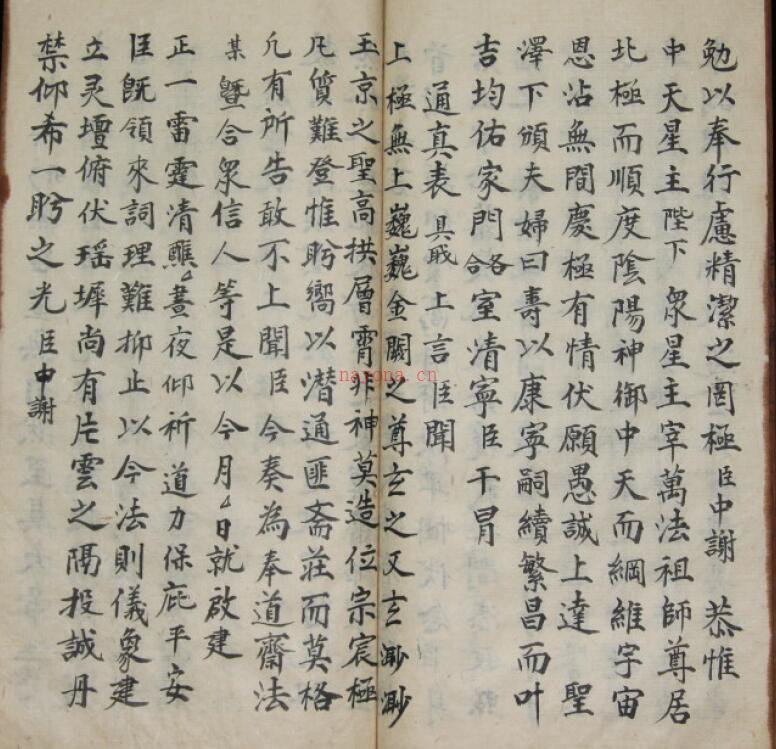 勉以奉行慮精潔之罔極臣中謝　恭惟
中天星主陛下　眾星主宰萬法祖師尊居
北極而順度陰陽神御中天而綱維宇宙
恩沾無間慶極有情伏願愚誠上達　聖
澤下頒夫婦曰壽以康寧嗣續繁昌而叶
吉均佑家門合室清寧臣干冒
通真表　具戝　上言臣聞
上極無上巍巍金闕之尊玄之又玄渺渺
玉京之聖高拱層霄非神莫造位宗宸極
凡質難登惟肹嚮以潛通匪斋莊而莫格
凢有所告敢不上聞臣今奏為奉道齋法
某暨合眾信人等是以今月 日就啟建
正一雷霆清醮 晝夜仰祈道力保庇平安
臣既領來詞理難抑止以今法則儀象建
立灵壇俯伏瑶墀尚有片雲之隔投誠丹
禁仰希一肹之光臣中謝
nayona.cn